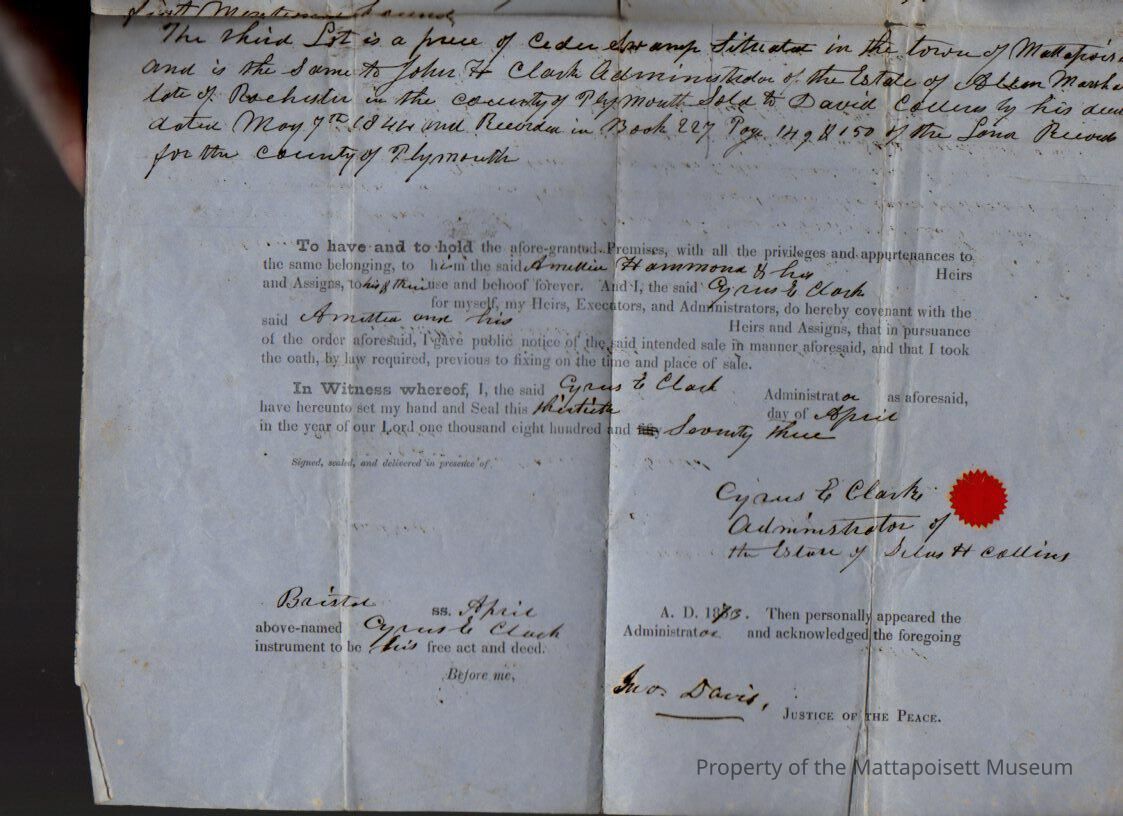 first mentioned
The third Lot is a piece of Ceder Swamp Situated in the town of Mattapois
and is the Same to John H Clark Administrator of the Estate of Marsha
late of Rochester in the county of Plymouth Sold to David Collins by his deed
dated May 7th 1844 and Recorded in Book 227 Page 149 & 150 of the Land Record
for the County of Plymouth
To have and to hold the afore-granted Premises, with all the privileges and appurtenances to
the same belonging, to him the said Amittia Hammond & his Heirs
and Assigns, to his & their use and behoof forever. And I, the said Cyrus E Clark
for myself, my Heirs, Executors, and Administrators, do hereby covenant with the
said Amittia and his Heirs and Assigns, that in pursuance
of the order aforesaid, I gave public notice of the said intended sale in manner aforesaid, and that I took
the oath, by law required, previous to fixing on the time and place of sale.
In Witness whereof, I, the said Cyrus E Clark Administrator as aforesaid,
have hereunto set my hand and Seal this thirtieth day of April
in the year of our Lord one thousand eight hundred and fifty Seventy three
Signed, sealed, and delivered in presence of
Cyrus E Clark
Administrator of
the Estate of Silas H Collins
Bristol ss. April A. D. 1873. Then personally appeared the
above-named Cyrus E Clark Administrator and acknowledged the foregoing
instrument to be his free act and deed.
Before me,
Jno. Davis,
Justice of the Peace.
Property of the Mattapoisett Museum